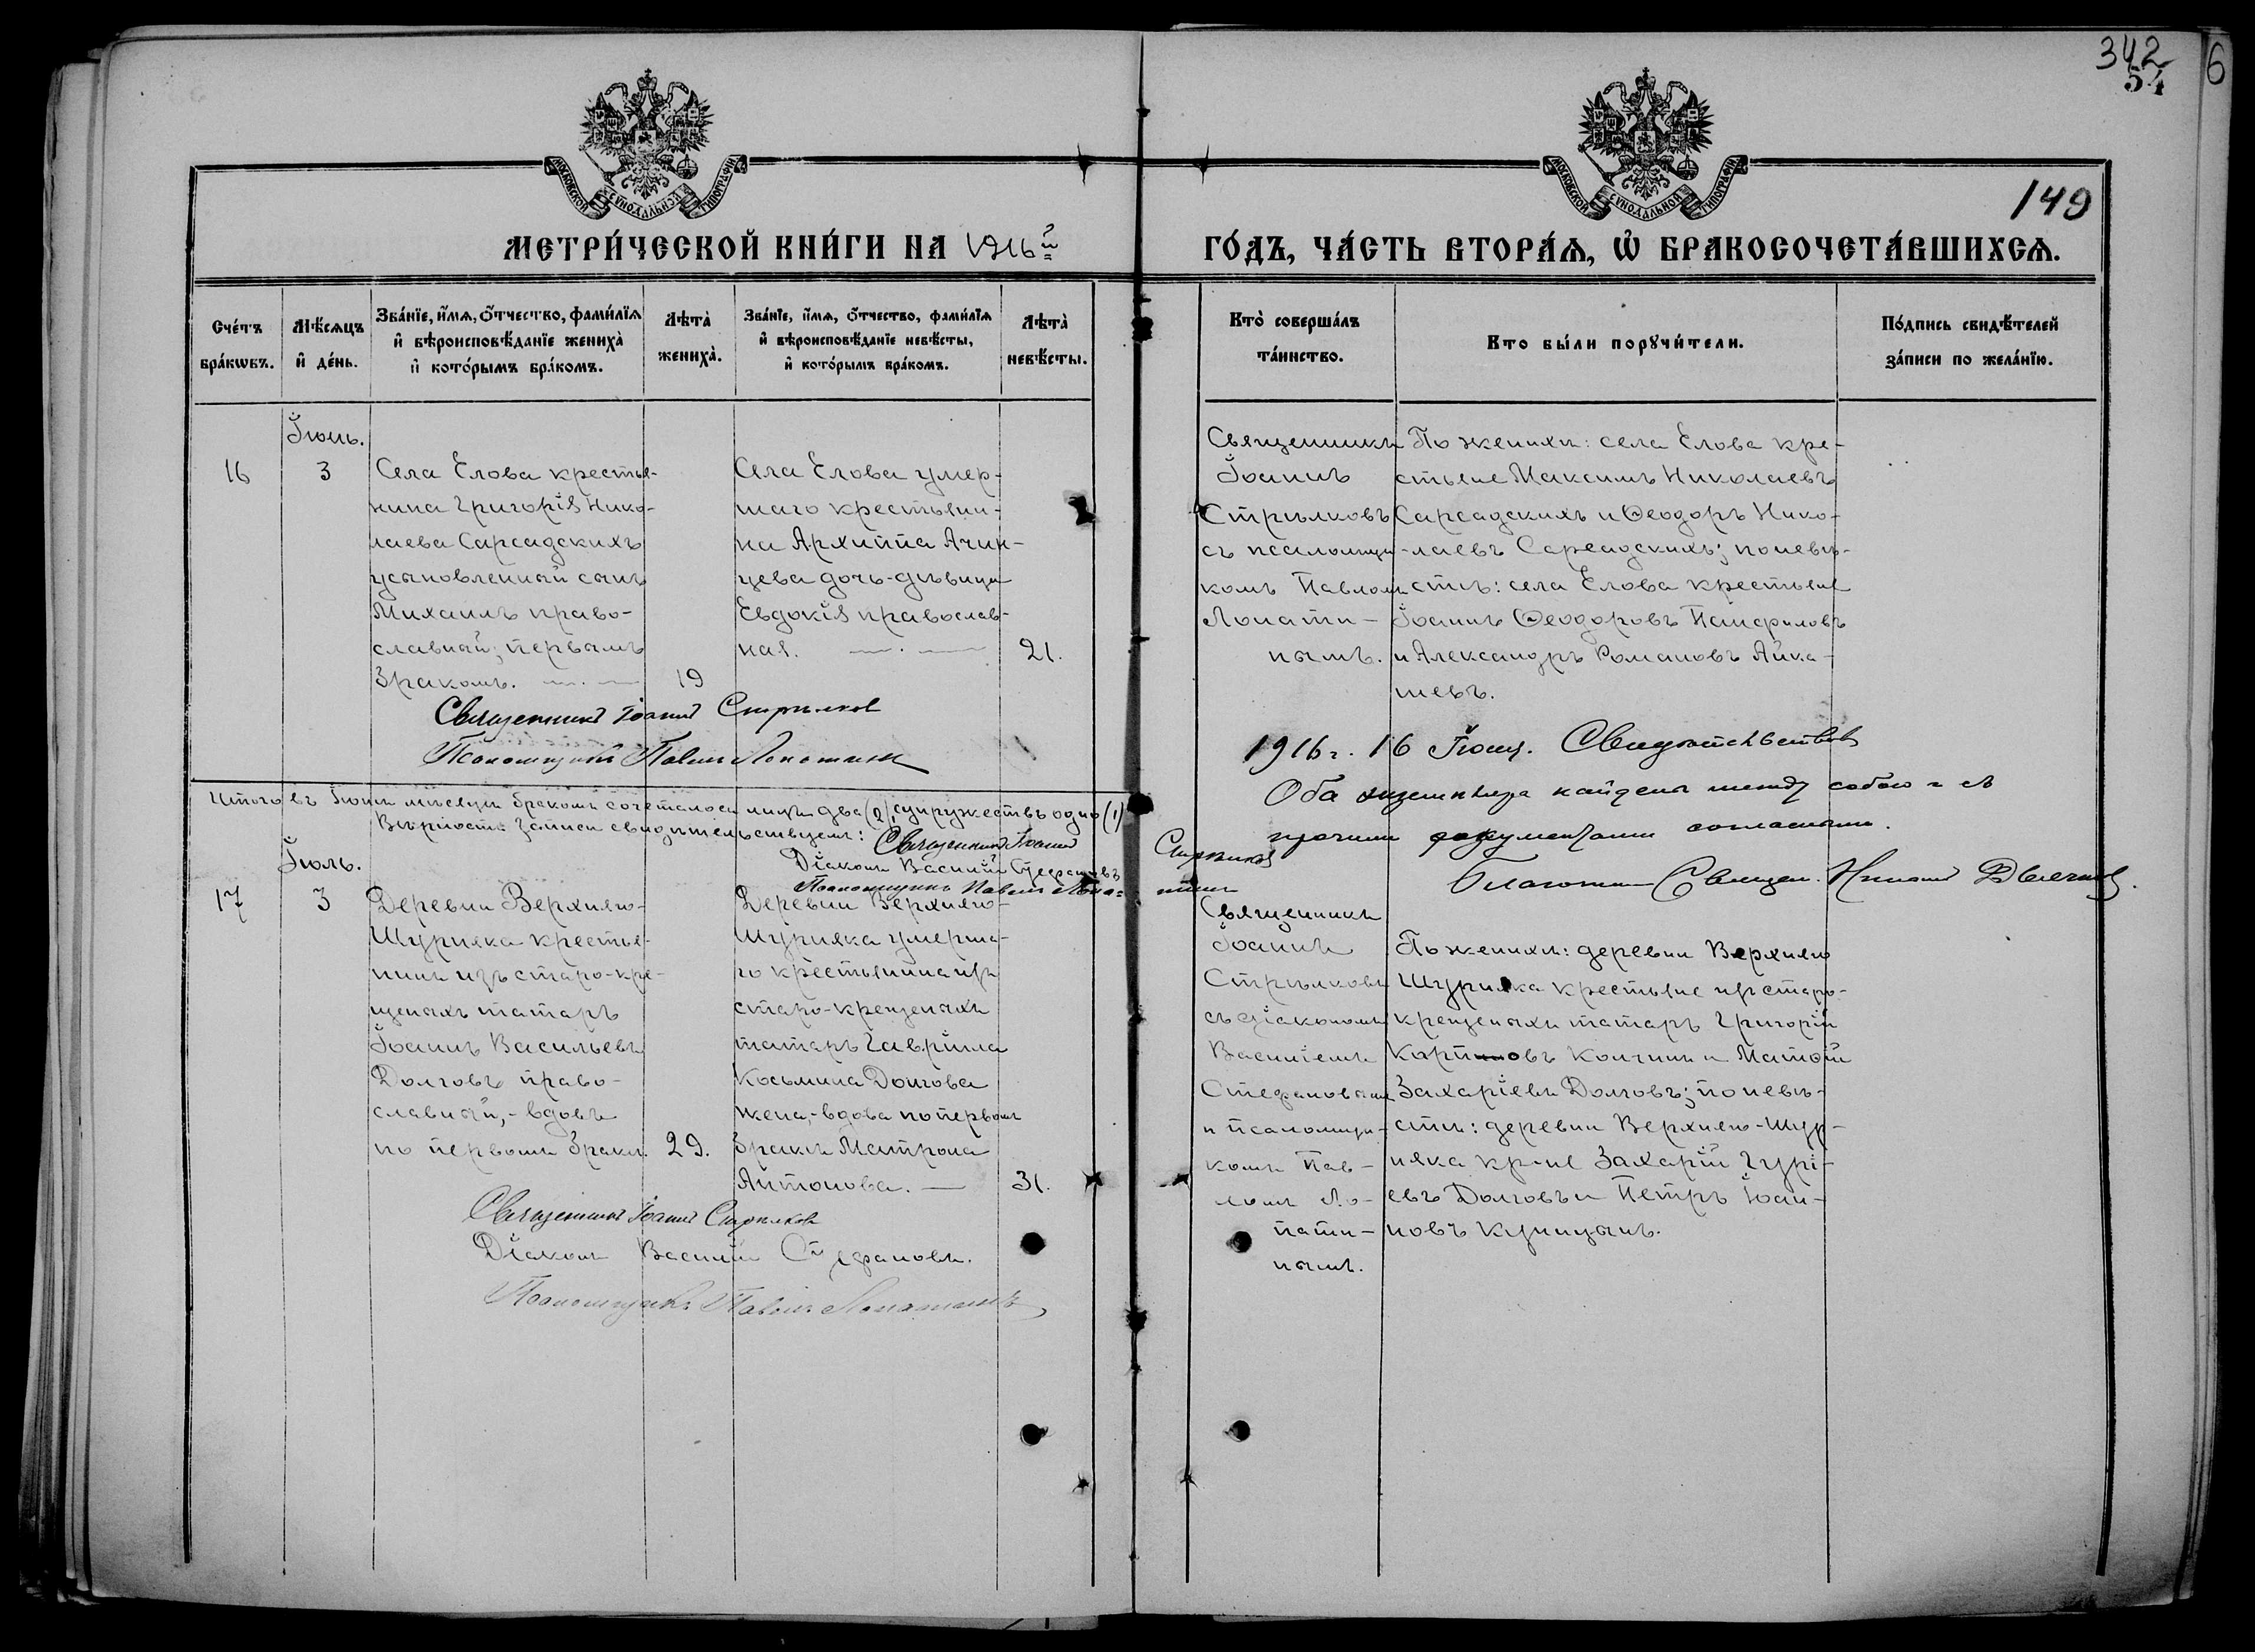 342
54
6
149
МОСКОВСКОЙ СѴНОДАЛЬНОЙ ТИПОГРАФІИ
МОСКОВСКОЙ СѴНОДАЛЬНОЙ ТИПОГРАФІИ
МЕТРИ́ЧЕСКОЙ КНИ́ГИ НА 1916й
ГО́ДЪ, ЧА́СТЬ ВТОРА́Ѧ, Ѽ БРАКОСОЧЕТА́ВШИХСѦ.
Сче́тъ бра́кѡвъ.
Мѣ́сѧцъ и҆ де́нь.
Зва́нїе, и҆́мѧ, ѻ҆́тчество, фами́лїѧ
и҆ вѣроисповѣ́данїе жениха̀
и҆ кото́рымъ бра́комъ.
Лѣта̀ жениха̀.
Зва́нїе, и҆́мѧ, ѻ҆́тчество, фами́лїѧ
и҆ вѣроисповѣ́данїе невѣ́сты,
и҆ кото́рымъ бра́комъ.
Лѣта̀ невѣ́сты.
Кто̀ соверша́лъ
та́инство.
Кто бы́ли порꙋчи́тели.
По́дпись свидѣ́телей
за́писи по жела́нїю.
Іюнь.
16
3
Села Елова крестья-
нина Григорія Нико-
лаева Сарсадскихъ
усыновленный сынъ
Михаилъ право-
славный; первымъ
бракомъ.
19
Села Елова умер-
шаго крестьяни-
на Архиппа Ачин-
цева дочь-дѣвица
Евдокія православ-
ная.
21.
Священникъ
Іоаннъ
Стрѣлковъ
съ псаломщи-
комъ Павломъ
Лопати-
нымъ.
По женихѣ: села Елова кре-
стьяне Максимъ Николаевъ
Сарсадскихъ и Ѳеодоръ Нико-
лаевъ Сарсадскихъ; по невѣ-
стѣ: села Елова крестьяне
Іоаннъ Ѳеодоровъ Памфиловъ
и Александръ Романовъ Айка-
шевъ.
Священникъ Іоаннъ Стрѣлков
Псаломщикъ Павелъ Лопатинъ
1916 г. 16 Свидѣтельствов
Оба экземпляра найдены между собою и съ
прочими документами согласными.
Священ.
Итого въ Іюнѣ мѣсяцѣ бракомъ сочеталось лицъ два (2), супружествъ одно (1)
Вѣрность записи свидѣтельствуемъ: Священникъ Іоаннъ Стрѣлков
Діаконъ Василій Стефановъ
Псаломщикъ Павелъ Лопа=тинъ
Іюль.
17
3
Деревни Верхняго-
Шуряка крестья-
нинъ изъ старо-кре-
щеныхъ татаръ
Іоаннъ Васильевъ
Долговъ право-
славный,-вдовъ
по первомъ бракѣ.
29.
Деревни Верхняго-
Шуряка умерша-
го крестьянина изъ
старо-крещеныхъ
татаръ Гавріила
Косьмина Долгова
жена,-вдова по первомъ
бракѣ Матрона
Антонова.
31.
Священникъ
Іоаннъ
Стрѣлковъ
съ діакономъ
Василіемъ
Стефановымъ
и псаломщи-
комъ Пав-
ломъ Ло-
пати-
нымъ.
По женихѣ: деревни Верхняго
Шуряка крестьяне изъ старо-
крещеныхъ татаръ Григорій
Карповъ и Матѳій
Захаріевъ Долговъ; по невѣ-
стѣ: деревни Верхняго-Шур-
няка кр-не Захарій Гурі-
евъ Долговъ и Петръ Іоан-
новъ Куницынъ.
Священникъ Іоаннъ Стрѣлков
Діаконъ Василій Стефановъ.
Псаломщикъ Павелъ Лопатинъ